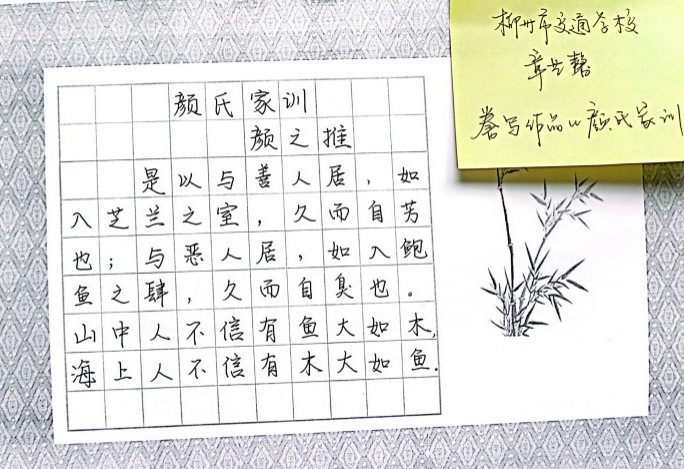 柳州市交通学校
章艺
誊写作品《颜氏家训
颜氏家训
颜之推
是以与善人居，如
入芝兰之室，久而自芳
也；与恶人居，如入鲍
鱼之肆，久而自臭也。
山中人不信有鱼大如木，
海上人不信有木大如鱼．